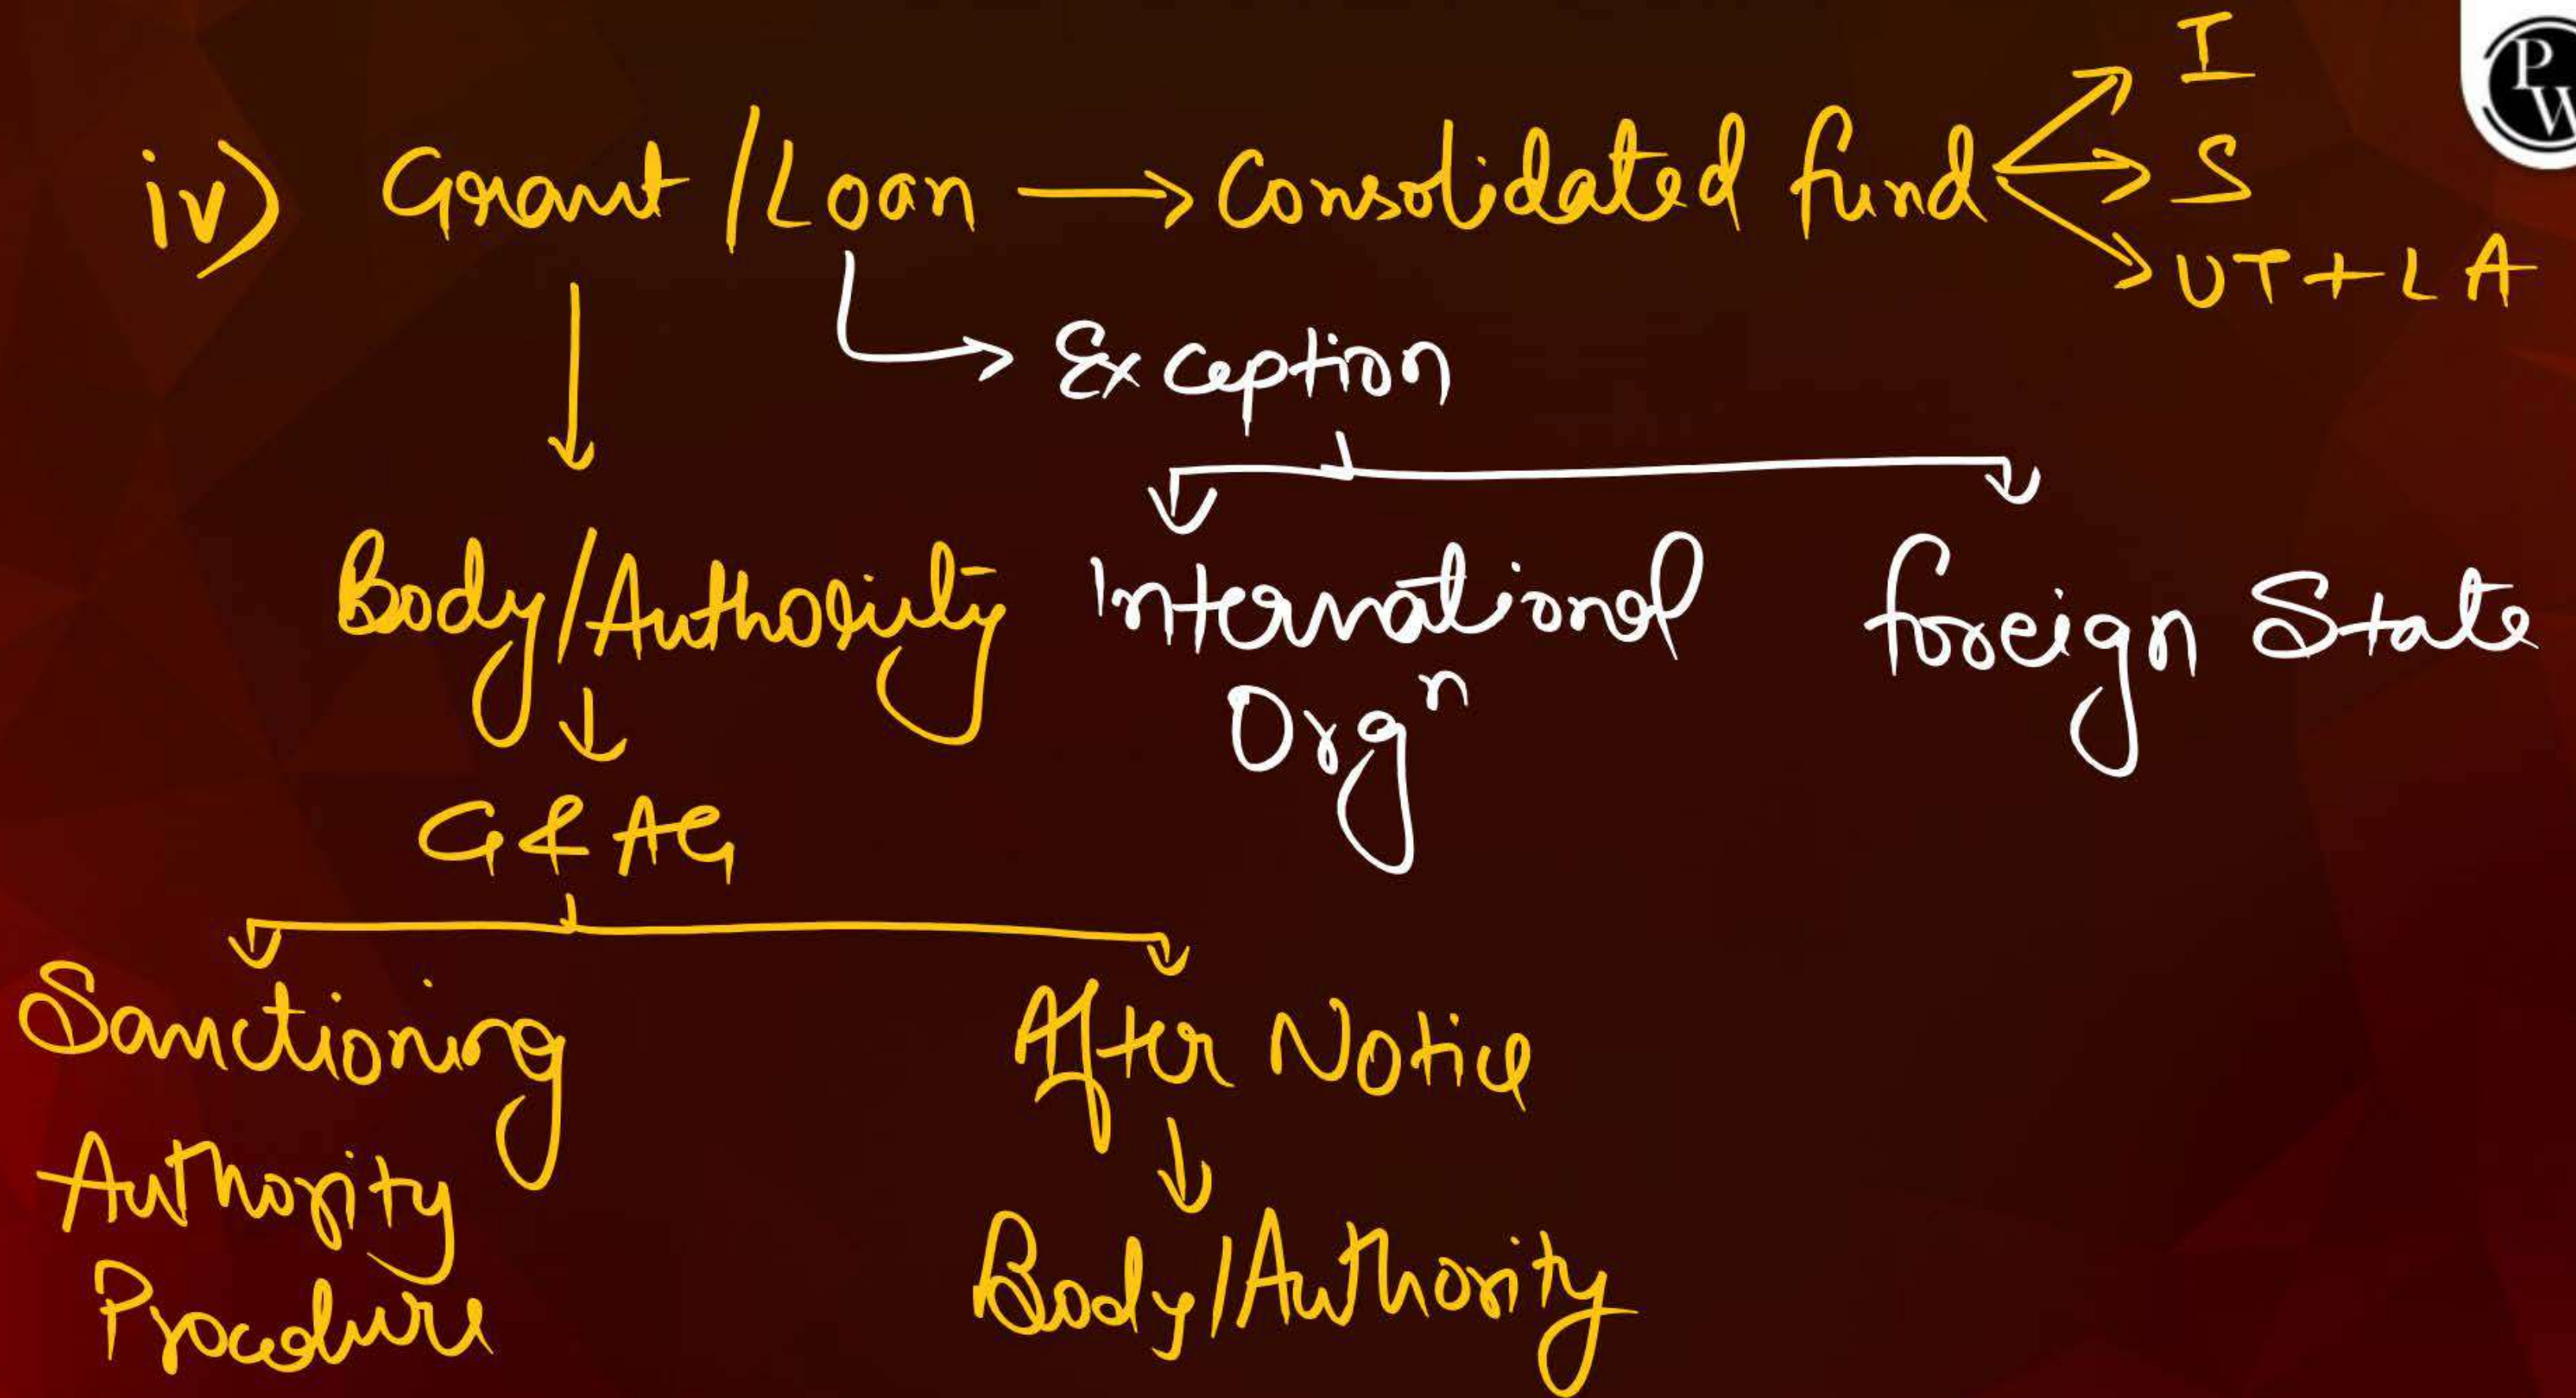 PW
iv) Grant / Loan → Consolidated fund
I
S
UT + LA
Exception
Body/Authority
International Orgⁿ
foreign State
C & AG
Sanctioning
Authority
Procedure
After Notice
Body/Authority